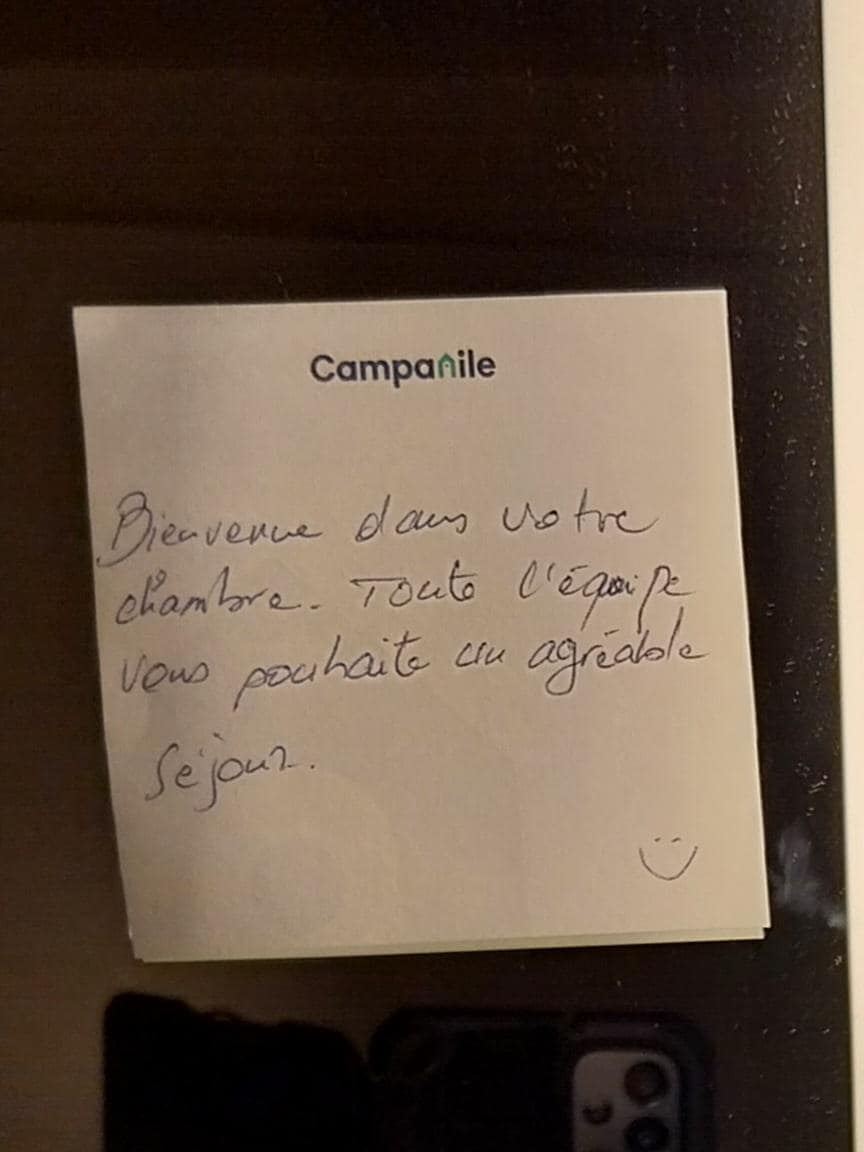 Campanile
Bienvenue dans votre
chambre. Toute l'équipe
vous souhaite un agréable
séjour.